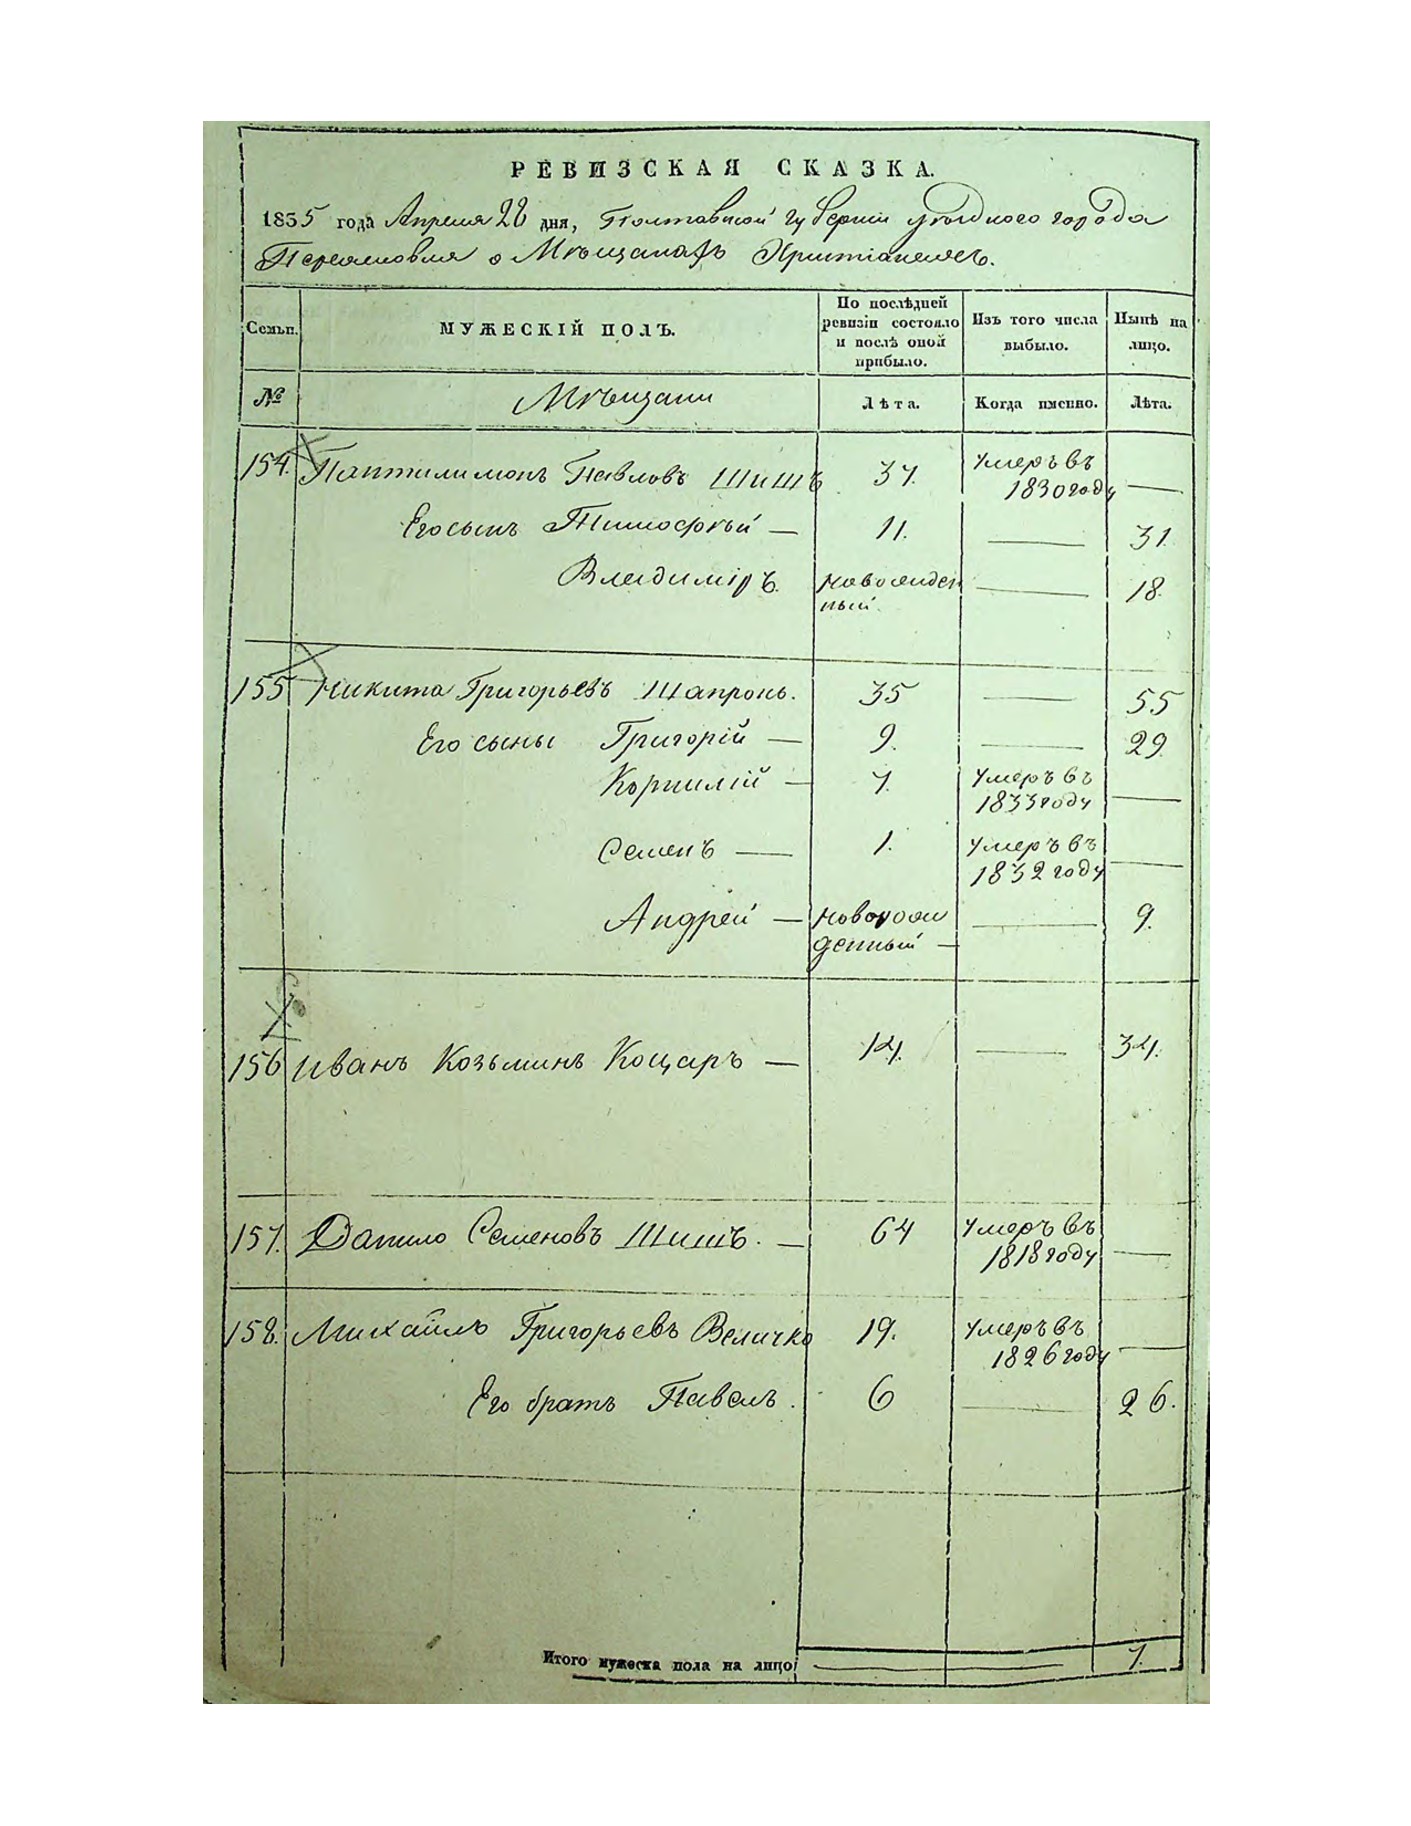 РЕВИЗСКАЯ СКАЗКА.
1835 года Апреля 28 дня, Полтавской губернии уѣзднаго города
Переяславля о Мѣщанахъ Христіанехъ.
Семьи.
МУЖЕСКІЙ ПОЛЪ.
По послѣдней ревизіи состояло и послѣ оной прибыло.
Изъ того числа выбыло.
Нынѣ на лицо.
№ Мѣщани Лѣта. Когда именно. Лѣта.
154. Пантилимонъ Павловъ Шишъ 37. умеръ въ 1830 году —
Его сынъ Тимофѣй — 11. — 31.
Владиміръ. новорожденный. — 18.
155 Никита Григорьевъ Шапронъ. 35 — 55
Его сыны Григорій — 9. — 29.
Корнилій — 7. умеръ въ 1833 году —
Семенъ — 1. умеръ въ 1832 году —
Андрей — новорожденный — — 9.
156 Иванъ Козьминъ Коцаръ — 14. — 34.
157. Данило Семеновъ Шишъ. — 64 умеръ въ 1818 году —
158. Михайлъ Григорьевъ Величко 19. умеръ въ 1826 году —
Его братъ Павелъ. 6 — 26.
Итого мужеска пола на лицо — 7.